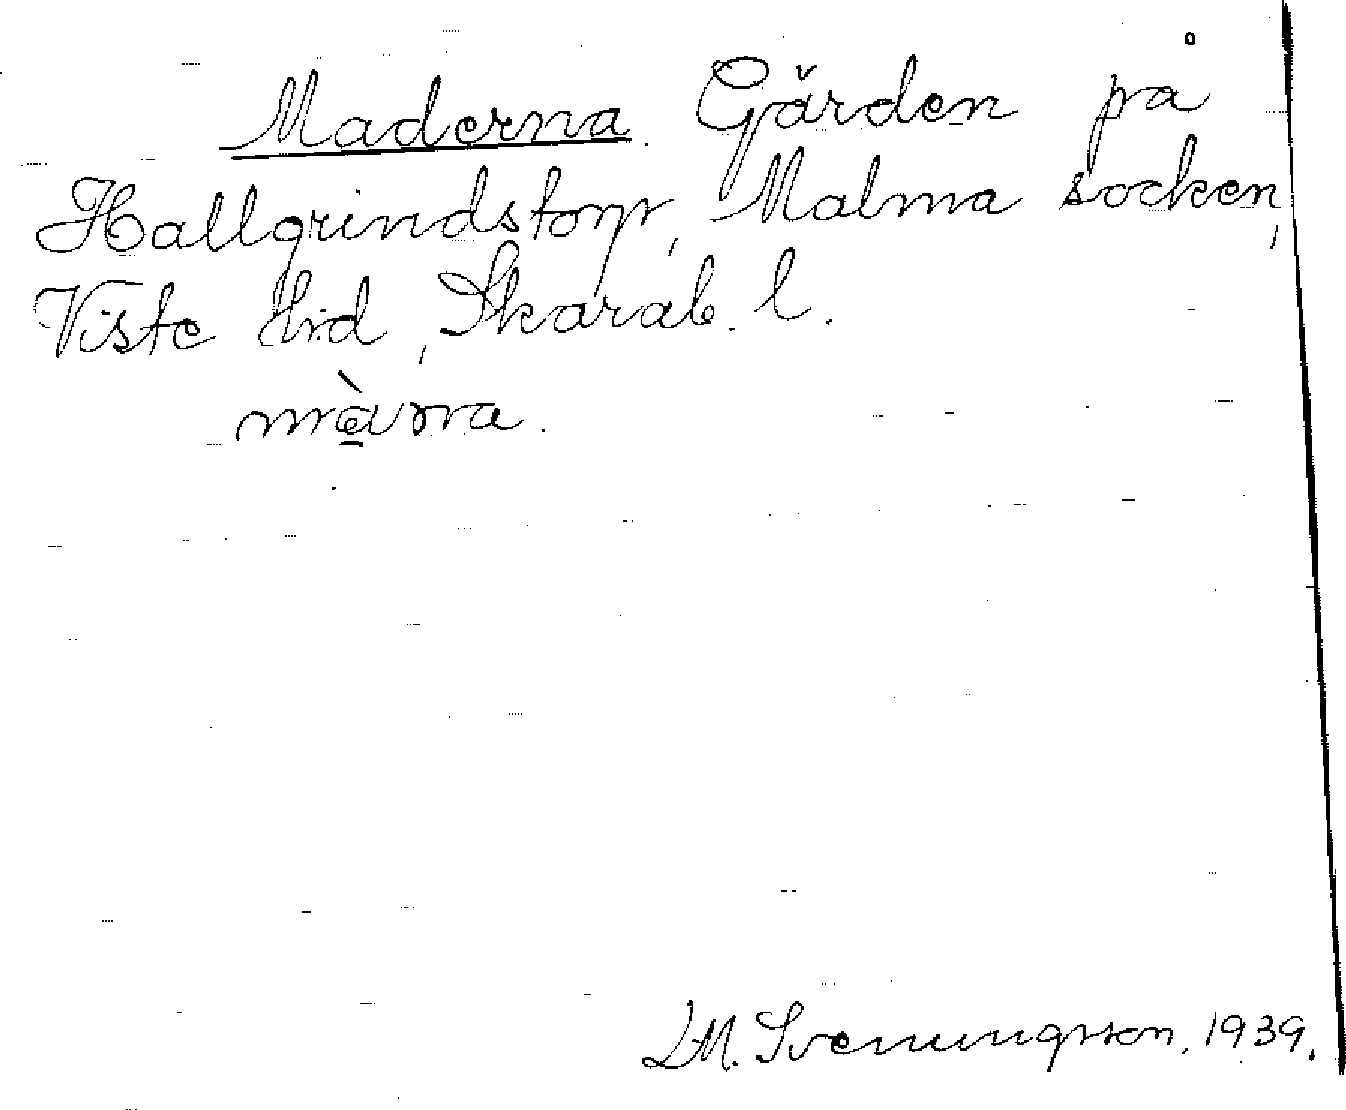 Maderna. Gården på
Hallgrindstorp, Malma socken,
Viste hd, Skarab. l.
L M. Svenungsson. 1939.